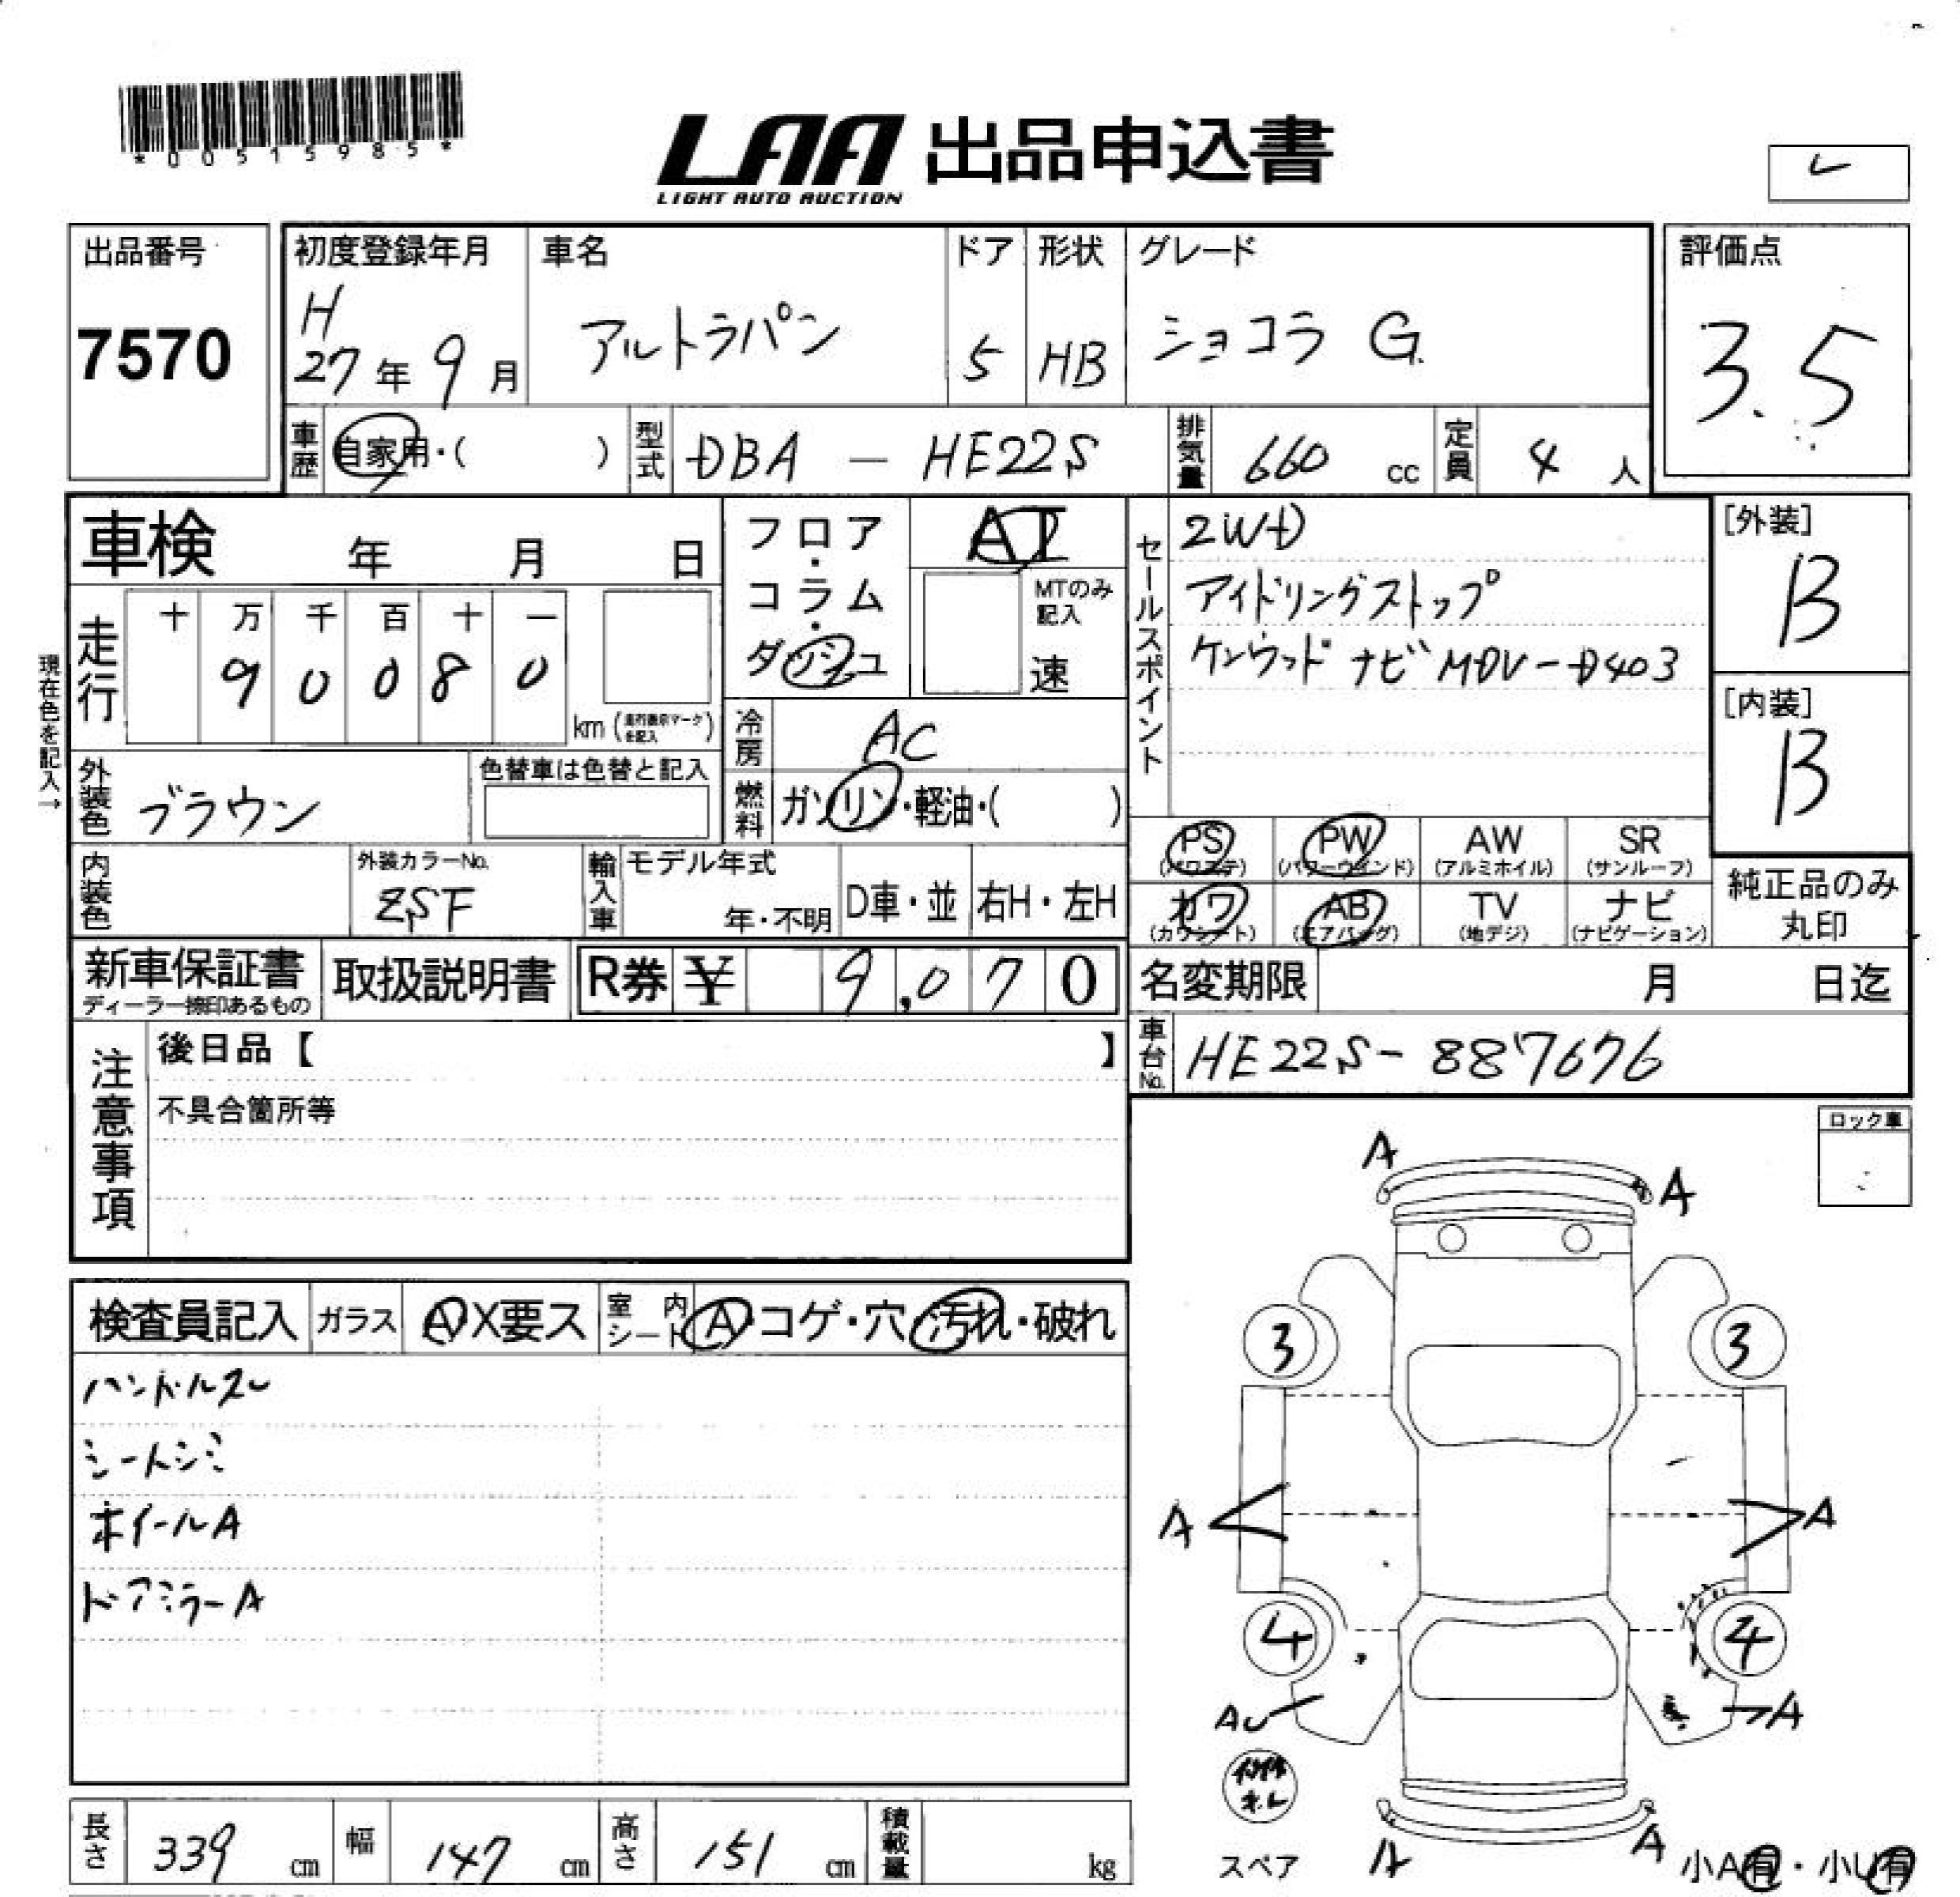 *00515985*
LAA 出品申込書
LIGHT AUTO AUCTION
レ
出品番号
7570
初度登録年月
H
27年 9月
車名
アルトラパン
ドア
5
形状
HB
グレード
ショコラ G
評価点
3.5
車歴 自家用・( )
型式 DBA - HE22S
排気量 660 cc
定員 4 人
車検 年 月 日
フロア・コラム・ダッシュ
AT
MTのみ記入
速
セールスポイント
2WD
アイドリングストップ
ケンウッド ナビ MDV-D403
[外装]
B
[内装]
B
現在色を記入→
走行
十 万 千 百 十 一
9 0 0 8 0
km (走行表示マークを記入)
冷房 AC
燃料 ガソリン・軽油・( )
外装色 ブラウン
色替車は色替と記入
内装色
外装カラーNo.
ZSF
輸入車 モデル年式
年・不明
D車・並
右H・左H
PS (パワステ)
PW (パワーウィンド)
AW (アルミホイル)
SR (サンルーフ)
カワ (カワシート)
AB (エアバッグ)
TV (地デジ)
ナビ (ナビゲーション)
純正品のみ
丸印
新車保証書
ディーラー捺印あるもの
取扱説明書
R券 ¥ 9,070
名変期限 月 日迄
車台No. HE22S-887676
注意事項
後日品【 】
不具合箇所等
ロック車
検査員記入
ガラス A X要ス
室内シート A・コゲ・穴・汚れ・破れ
ハンドルスレ
シートシミ
ホイールA
ドアミラーA
A
A
3
3
A
A
4
4
AU
A
スペア
A
A
小A有・小U有
長さ 339 cm
幅 147 cm
高さ 151 cm
積載量 kg